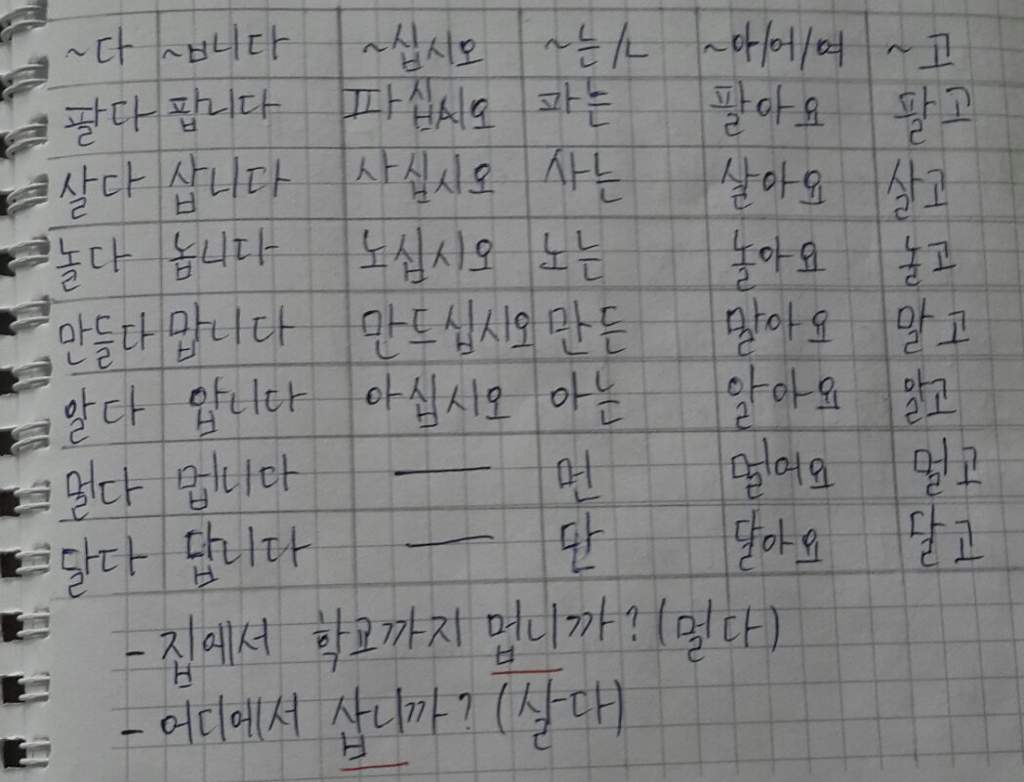 ~다 ~ㅂ니다 ~십시오 ~는/ㄴ ~아/어/여 ~고
팔다 팝니다 파십시오 파는 팔아요 팔고
살다 삽니다 사십시오 사는 살아요 살고
놀다 놉니다 노십시오 노는 놀아요 놀고
만들다 맙니다 만드십시오 만든 말아요 말고
알다 압니다 아십시오 아는 알아요 알고
멀다 멉니다 — 먼 멀어요 멀고
달다 답니다 — 단 달아요 달고
- 집에서 학교까지 멉니까? (멀다)
- 어디에서 삽니까? (살다)